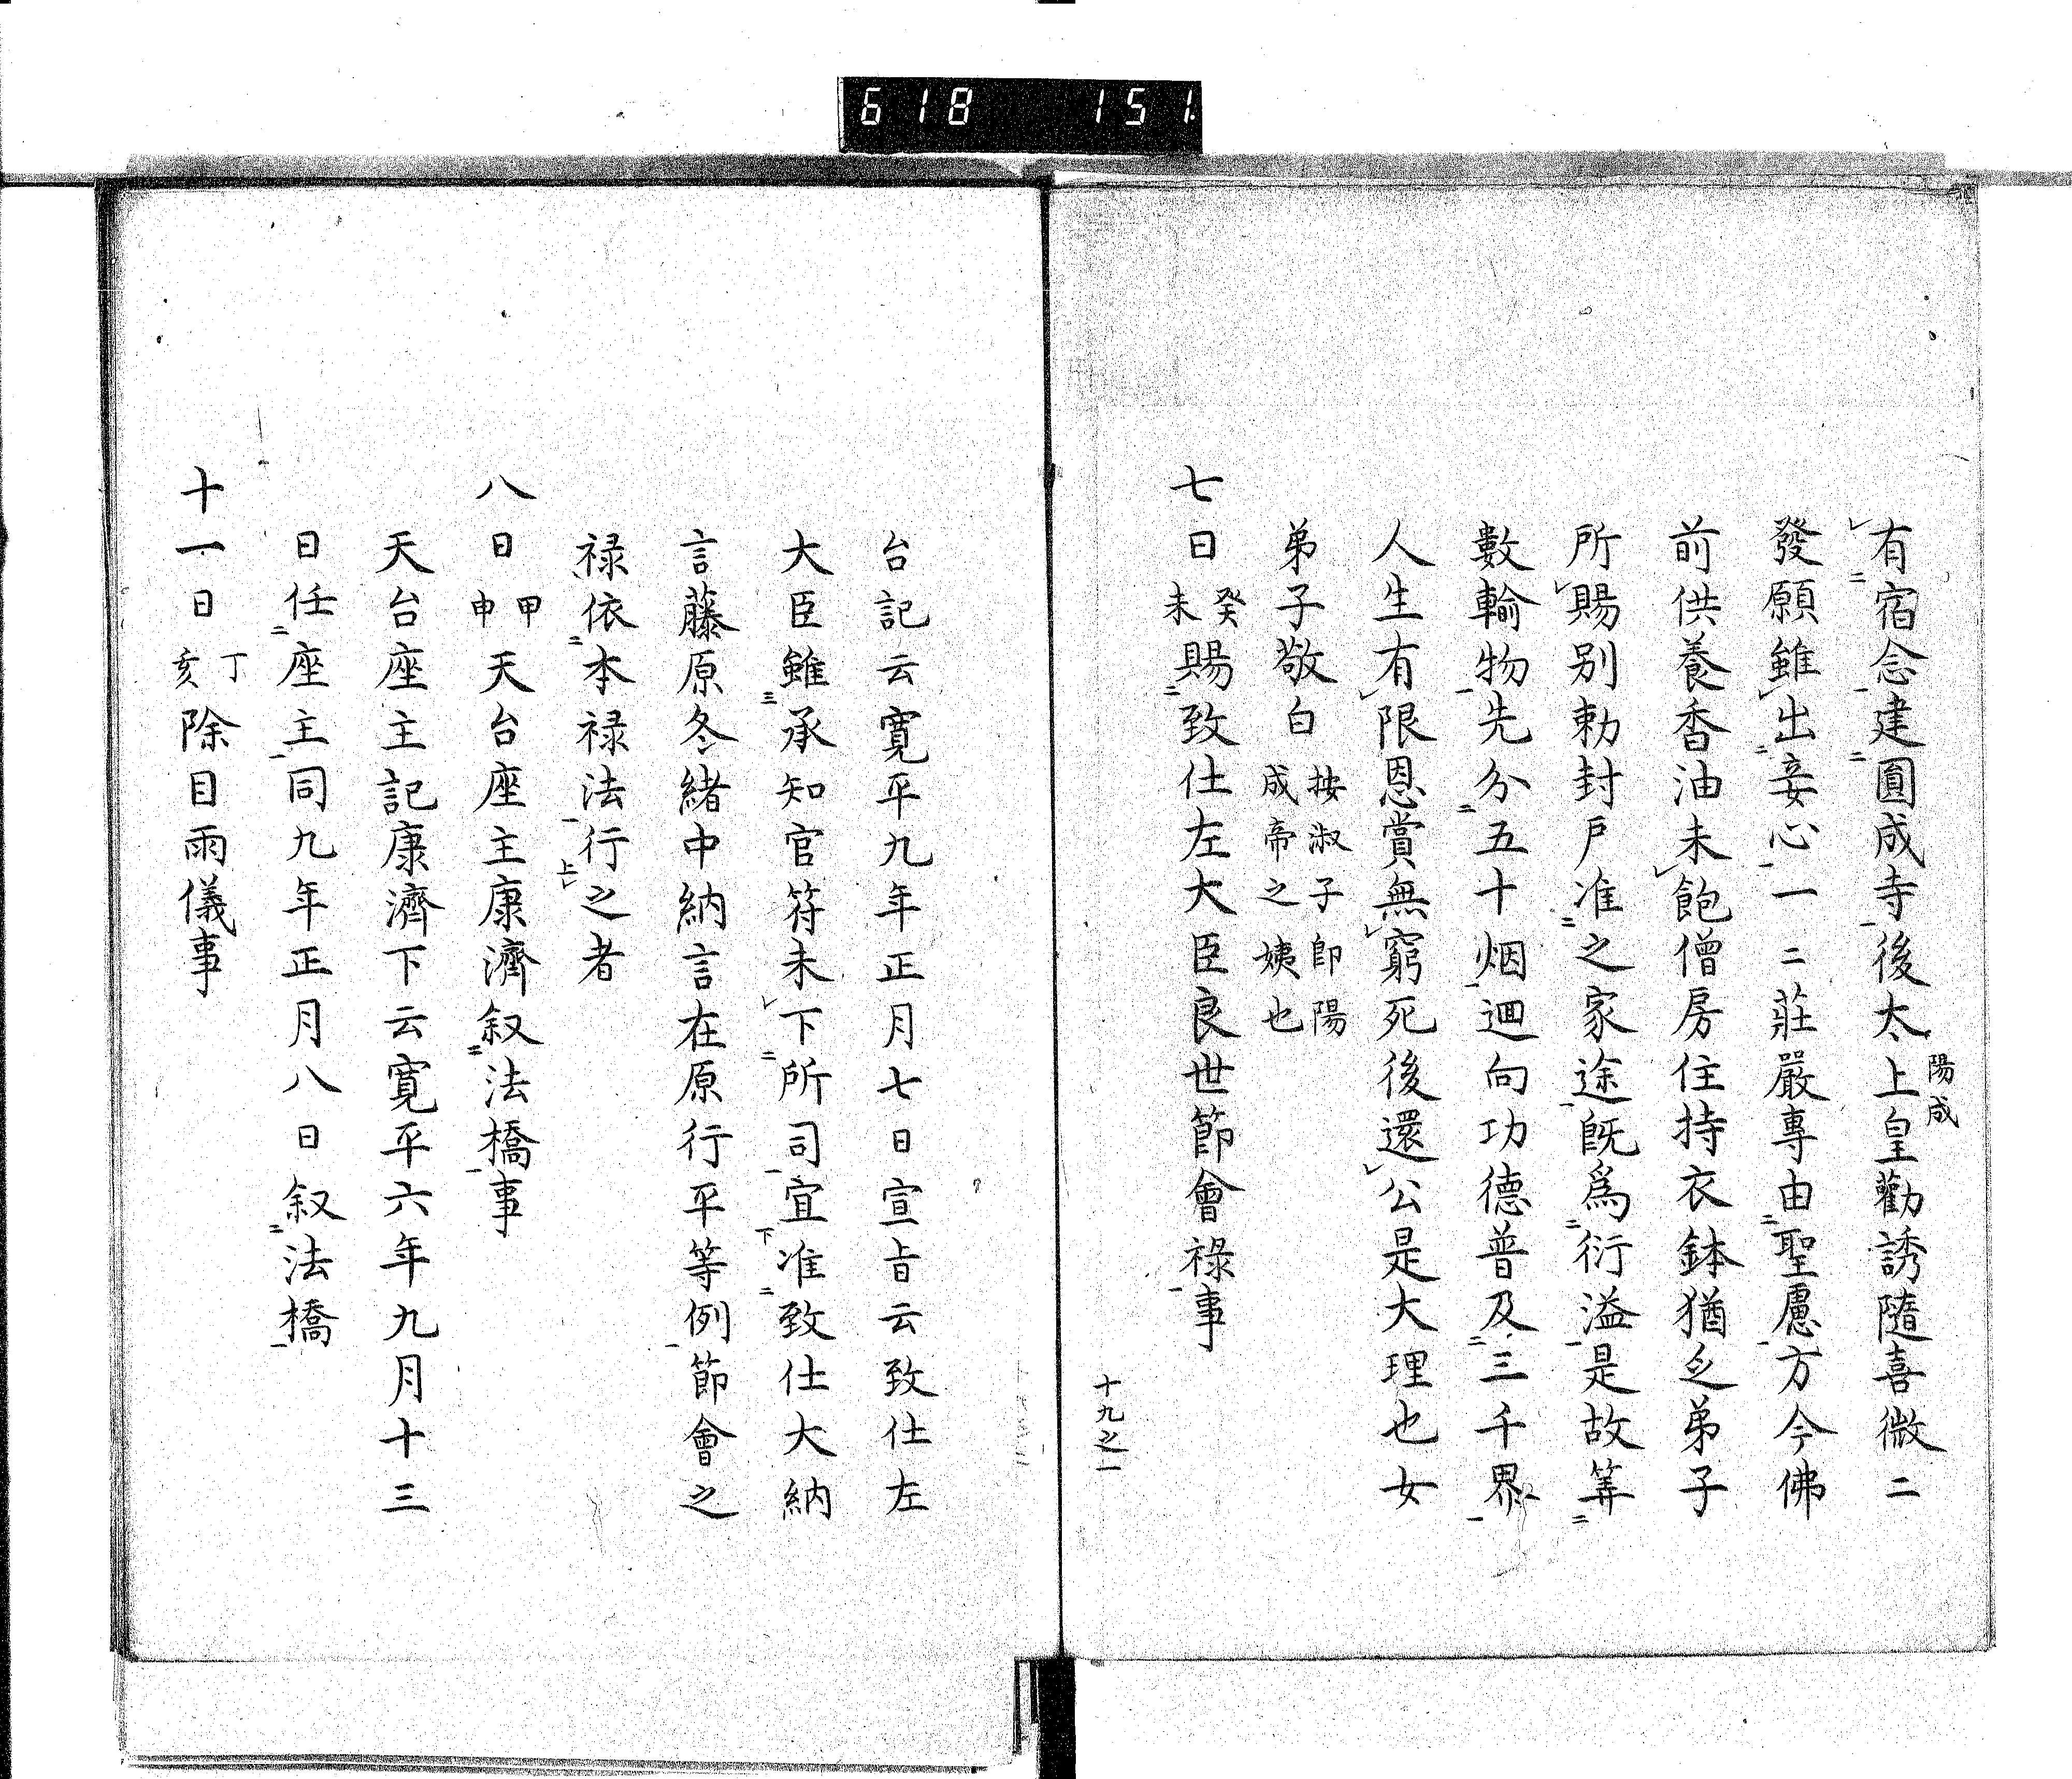 618 151
有宿念建圓成寺後太上皇勸誘隨喜微二
陽成
發願雖出妾心一二莊嚴專由聖慮方今佛
前供養香油未飽僧房住持衣鉢猶乏弟子
所賜別勅封戸准之家途既爲衍溢是故筭
數輸物先分五十烟迴向功德普及三千界
人生有限恩賞無窮死後還公是大理也女
弟子敬白
按淑子即陽
成帝之姨也
七日癸未賜致仕左大臣良世節會祿事
十九之一
台記云寛平九年正月七日宣旨云致仕左
大臣雖承知官符未下所司宜准致仕大納
言藤原冬緒中納言在原行平等例節會之
禄依本禄法行之者
八日甲申天台座主康濟叙法橋事
天台座主記康濟下云寛平六年九月十三
日任座主同九年正月八日叙法橋
十一日丁亥除目雨儀事